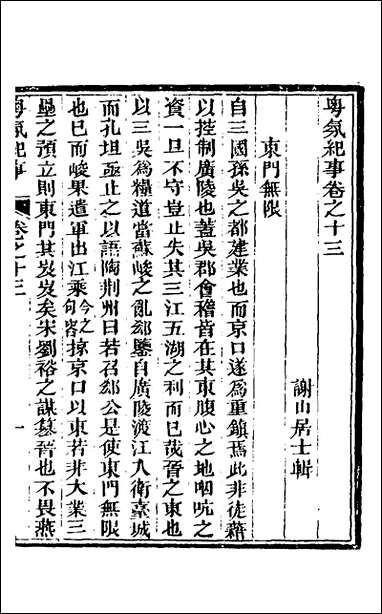 粵氛紀事卷之十三
謝山居士輯
東門無限
自三國孫吳之都建業也而京口遂為重鎮焉此非徒藉
以控制廣陵也蓋吳郡會稽皆在其東腹心之地咽吭之
資一旦不守豈止失其三江五湖之利而已哉晉之東也
以三吳為糧道當蘇峻之亂郄鑒自廣陵渡江入衛臺城
而孔坦亟止之以語陶荊州曰若召郄公是使東門無限
也已而峻果遣軍出江乘今之句容掠京口以東若非大業三
壘之預立則東門其岌岌矣宋劉裕之謀篡晉也不畏燕
粵氛紀事
卷之十三
一